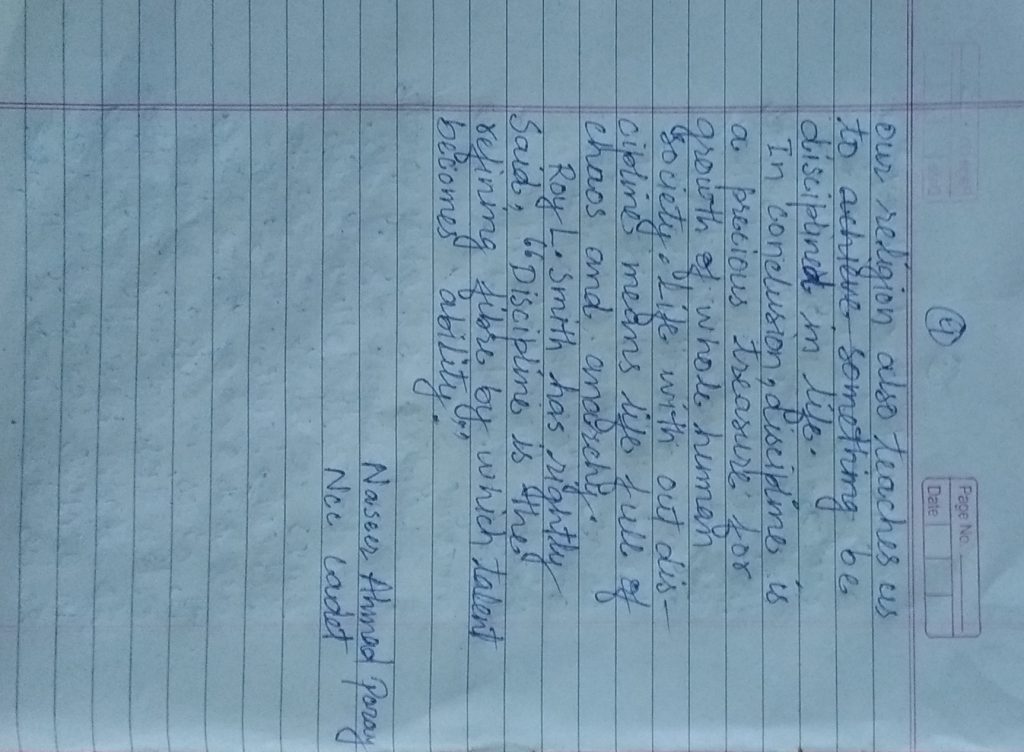 Page No.
Date
our religion also teaches us
to achieve something be
disciplined in life.
In conclusion, discipline is
a precious treasure for
growth of whole human
society. Life with out dis-
cipline means life full of
chaos and anarchy.
Roy L. Smith has rightly
Said, "Discipline is the
refining fibre by which talent
becomes ability."
Naseer Ahmad Paray
Ncc cadet